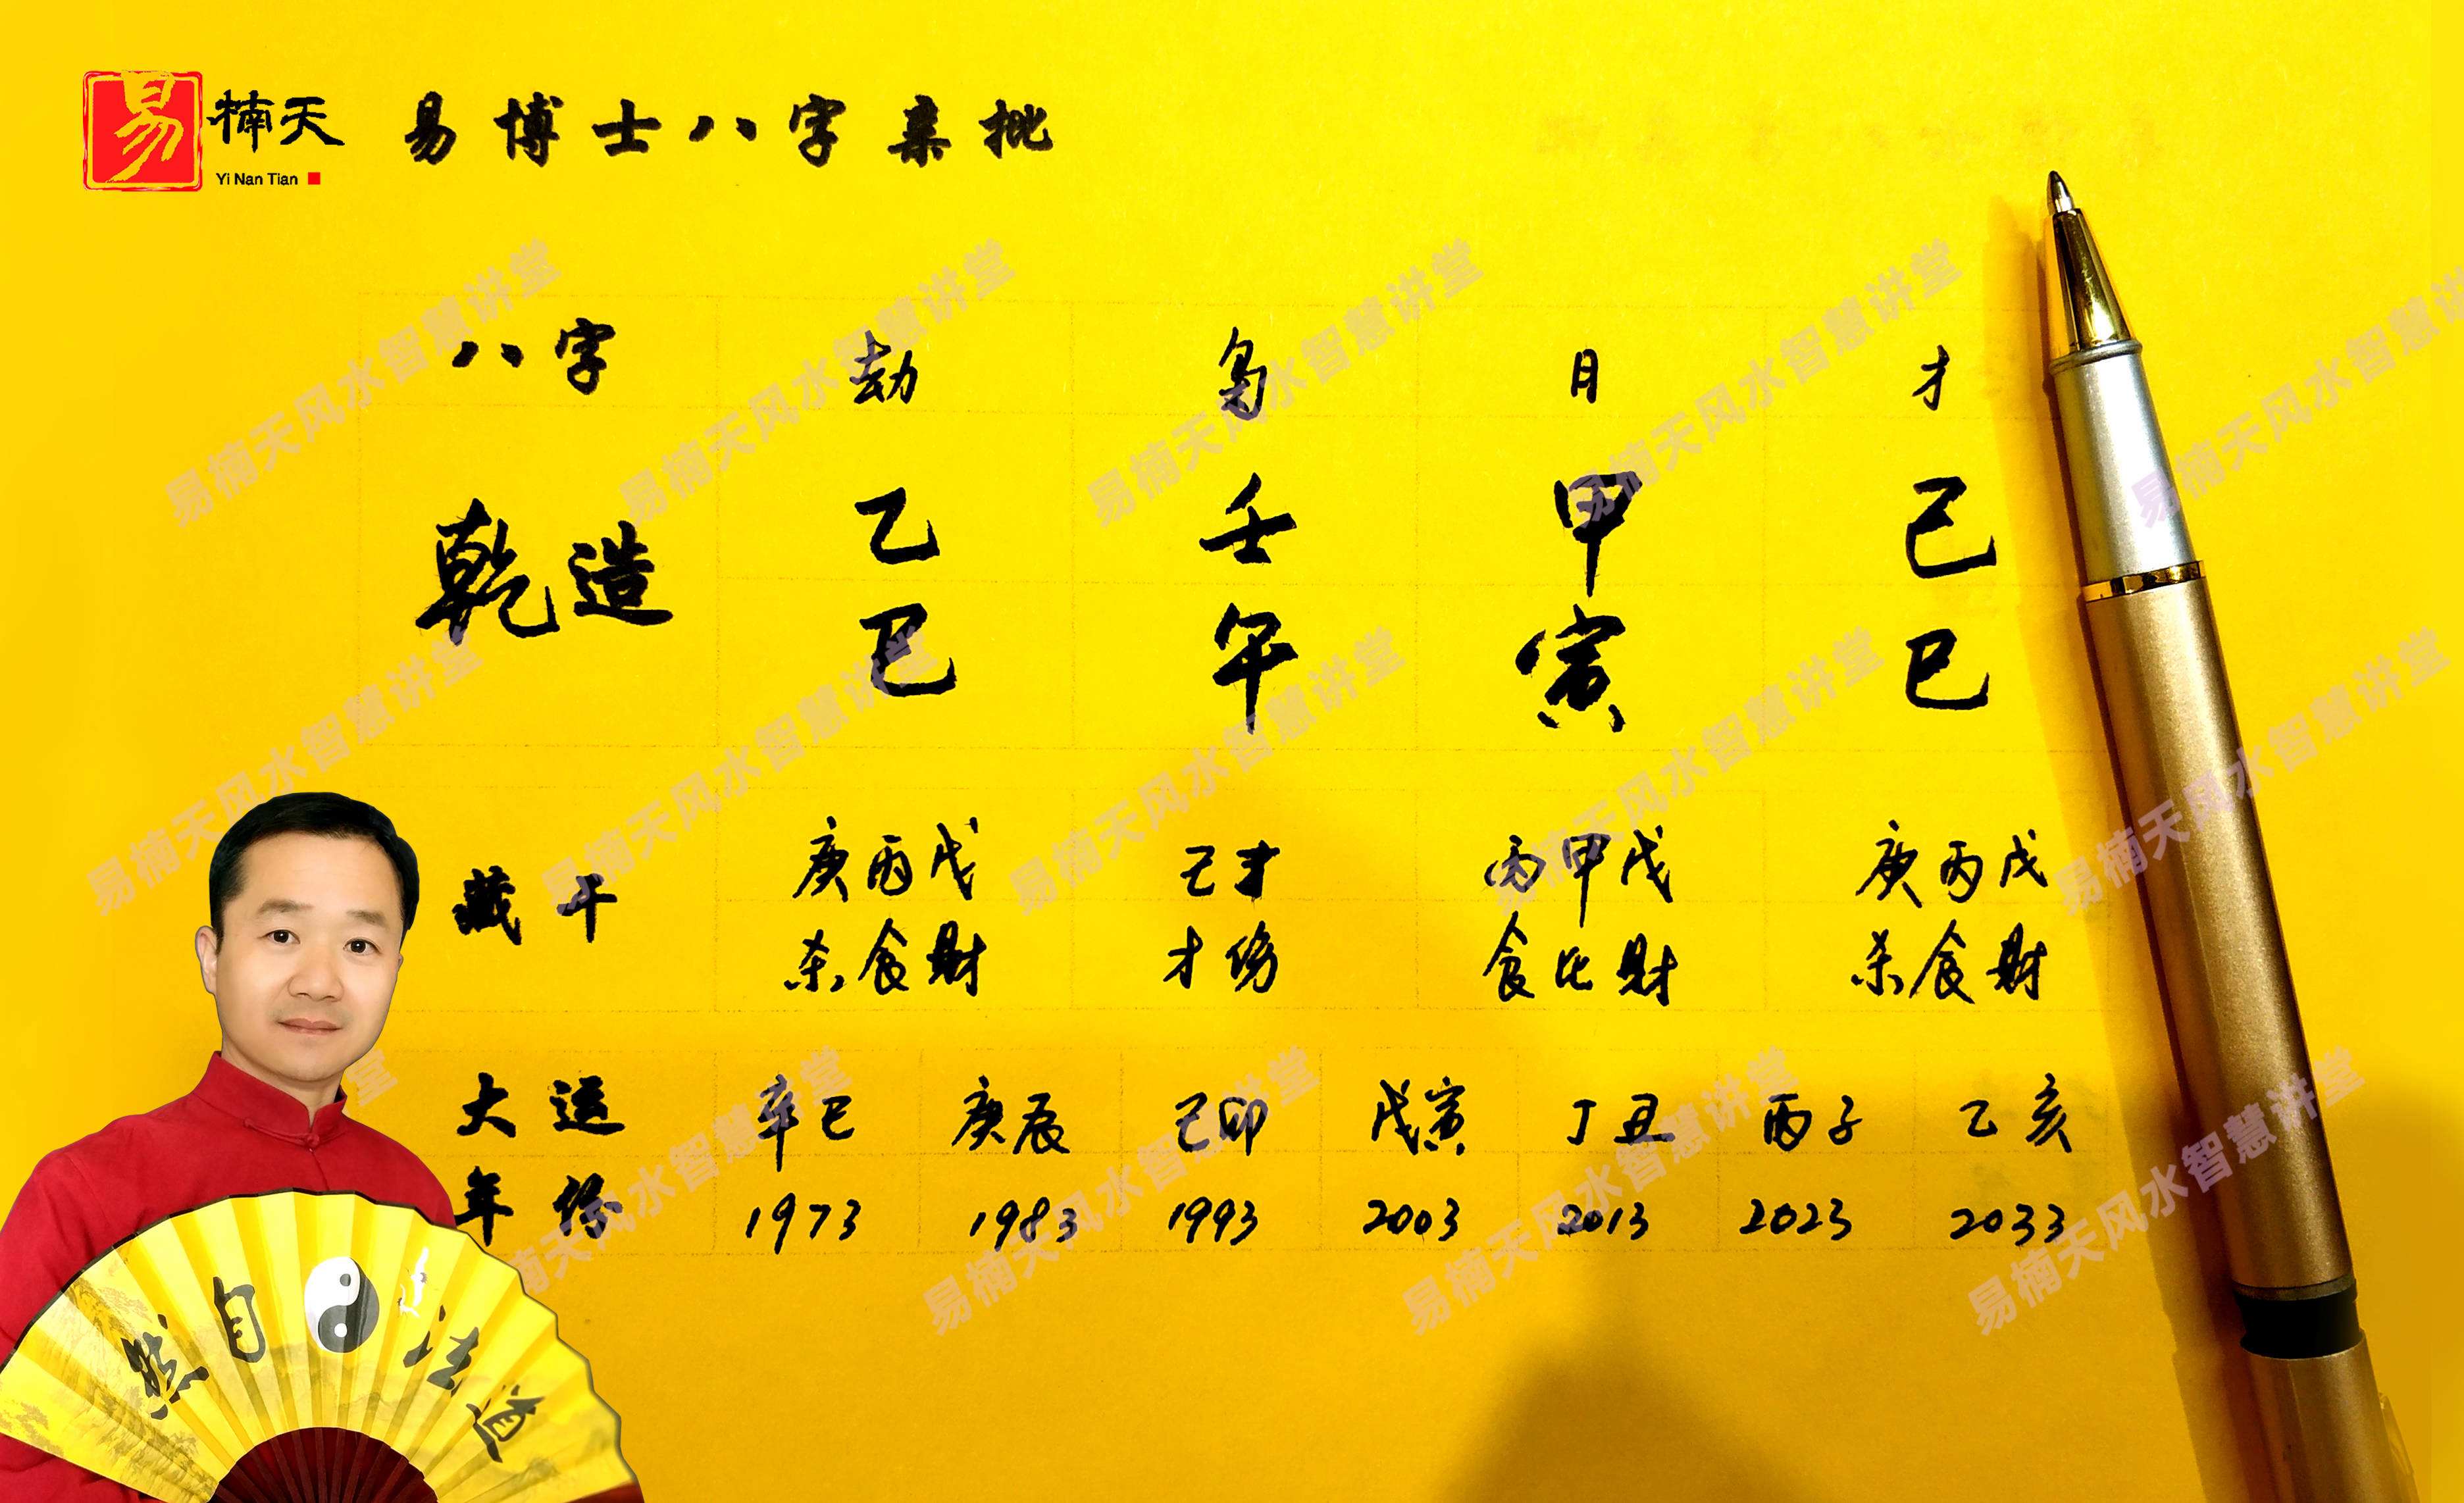 易 楠天 易博士八字亲批
Yi Nan Tian
八字 劫 枭 日 才
乾造 乙 壬 甲 己
巳 午 寅 巳
藏干 庚丙戊 己丁 丙甲戊 庚丙戊
杀食财 才伤 食比财 杀食财
大运 辛巳 庚辰 己卯 戊寅 丁丑 丙子 乙亥
年份 1973 1983 1993 2003 2013 2023 2033
道法自然
易楠天风水智慧讲堂